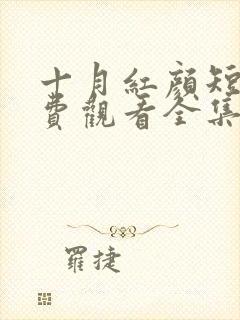 十月紅顏短
費觀看全集
羅捷